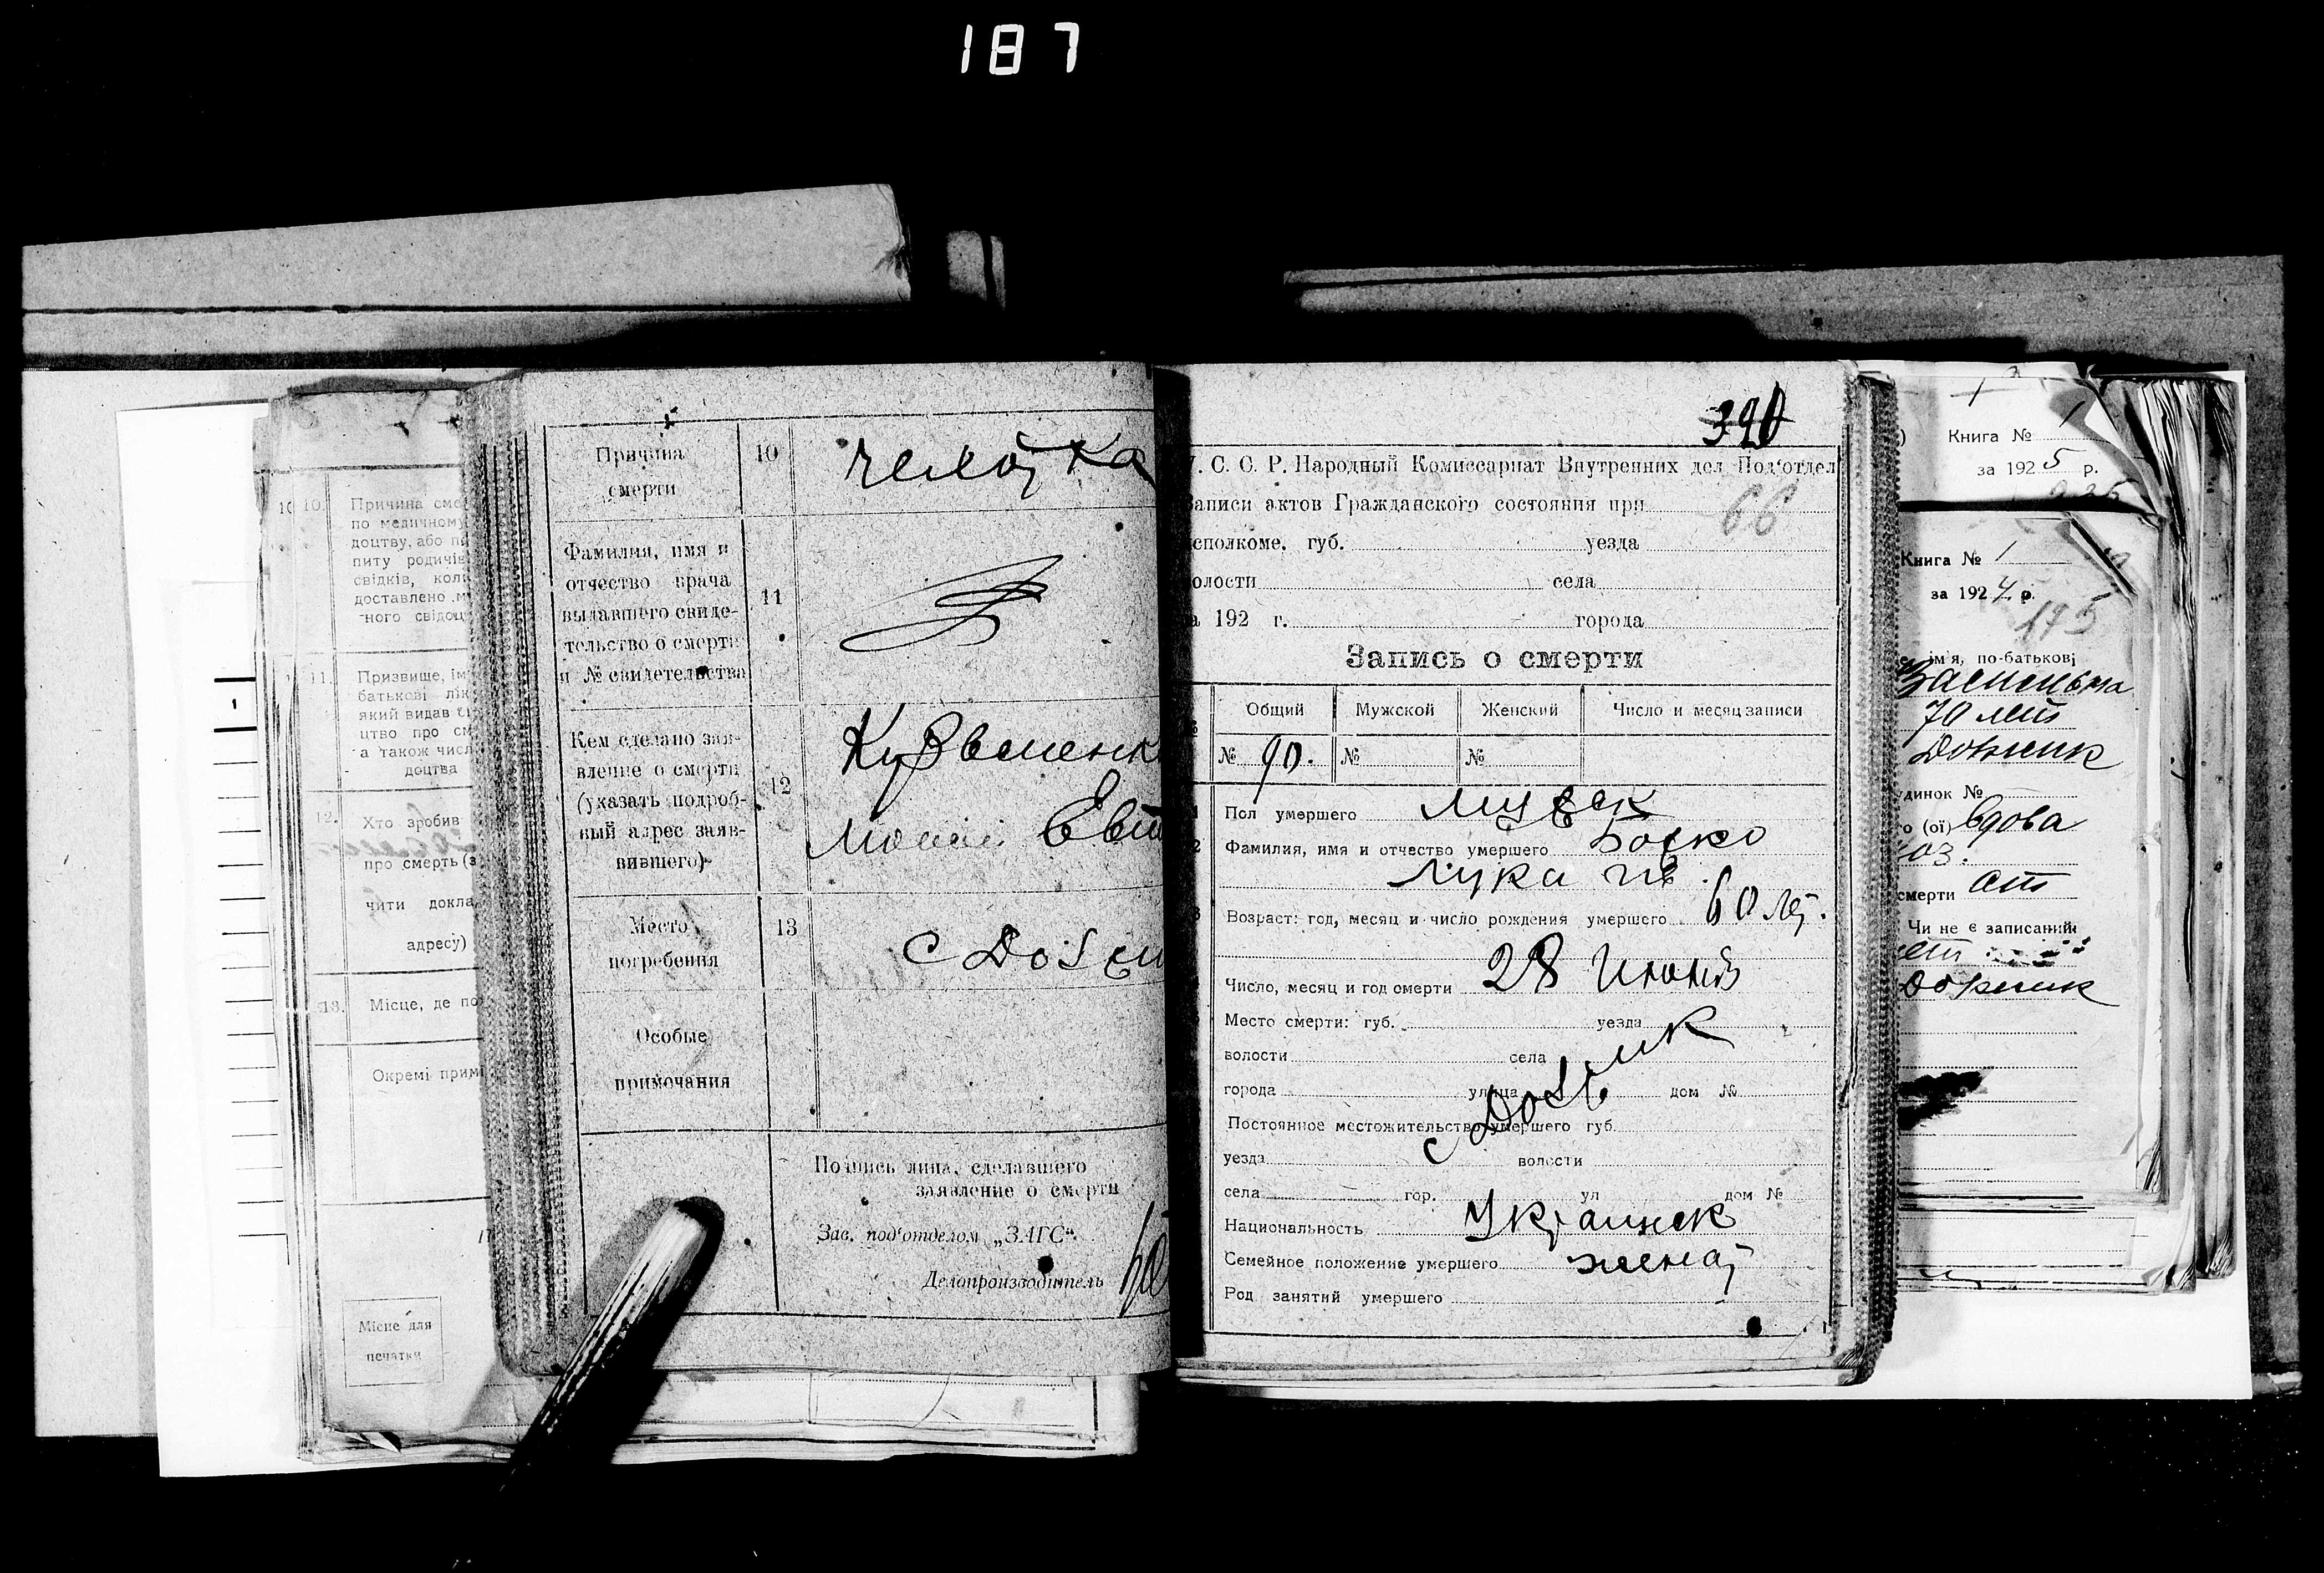 187
10
10.
Причина сме
по медичному
доцтву, або п
питу родичів
свідків, кол
доставлено м
ного свідоц
11.
Призвище, ім
батькові лік
який видав сі
цтво про см
а також числ
доцтва
12.
Хто зробив
про смерть (з
чити докла
адресу)
13.
Місце, де по
Окремі прим
Місце для
печатки
Причина
смерти
10
чехотка
Фамилия, имя и
отчество врача
выдавшего свиде-
тельство о смерти
и № свидетельства
11
Кем сделано зая-
вление о смерти
(указать подроб-
ный адрес заяв-
вившего)
12
Кузьменк
Евт
Место
погребения
13
с
Особые
примочания
Подпись лица, сделавшего
заявление о смерти
Зав. под'отделом „ЗАГС“.
Делопроизводитель
390
У. С. С. Р. Народный Комиссариат Внутренних дел Под'отдел
аписи актов Гражданского состояния при
66
сполкоме, губ. уезда
олости села
а 192 г. города
Запись о смерти
Общий Мужской Женский Число и месяц записи
№ 90. № №
Пол умершего мужск
Фамилия, имя и отчество умершего Бойко
Лука
Возраст: год, месяц и число рождения умершего 60 лет.
Число, месяц и год смерти 28 Июня
Место смерти: губ. уезда
волости села
города улица дом №
Постоянное местожительство умершего губ.
с
уезда волости
села гор. ул дом №
Национальность Украинск
Семейное положение умершего женат
Род занятий умершего
Книга № 1
за 1925 р.
Книга № 1
за 1924 р.
195
ім'я, по-батькові
70 лет
удинок №
о (ої) вдова
смерти от
Чи не є записаний